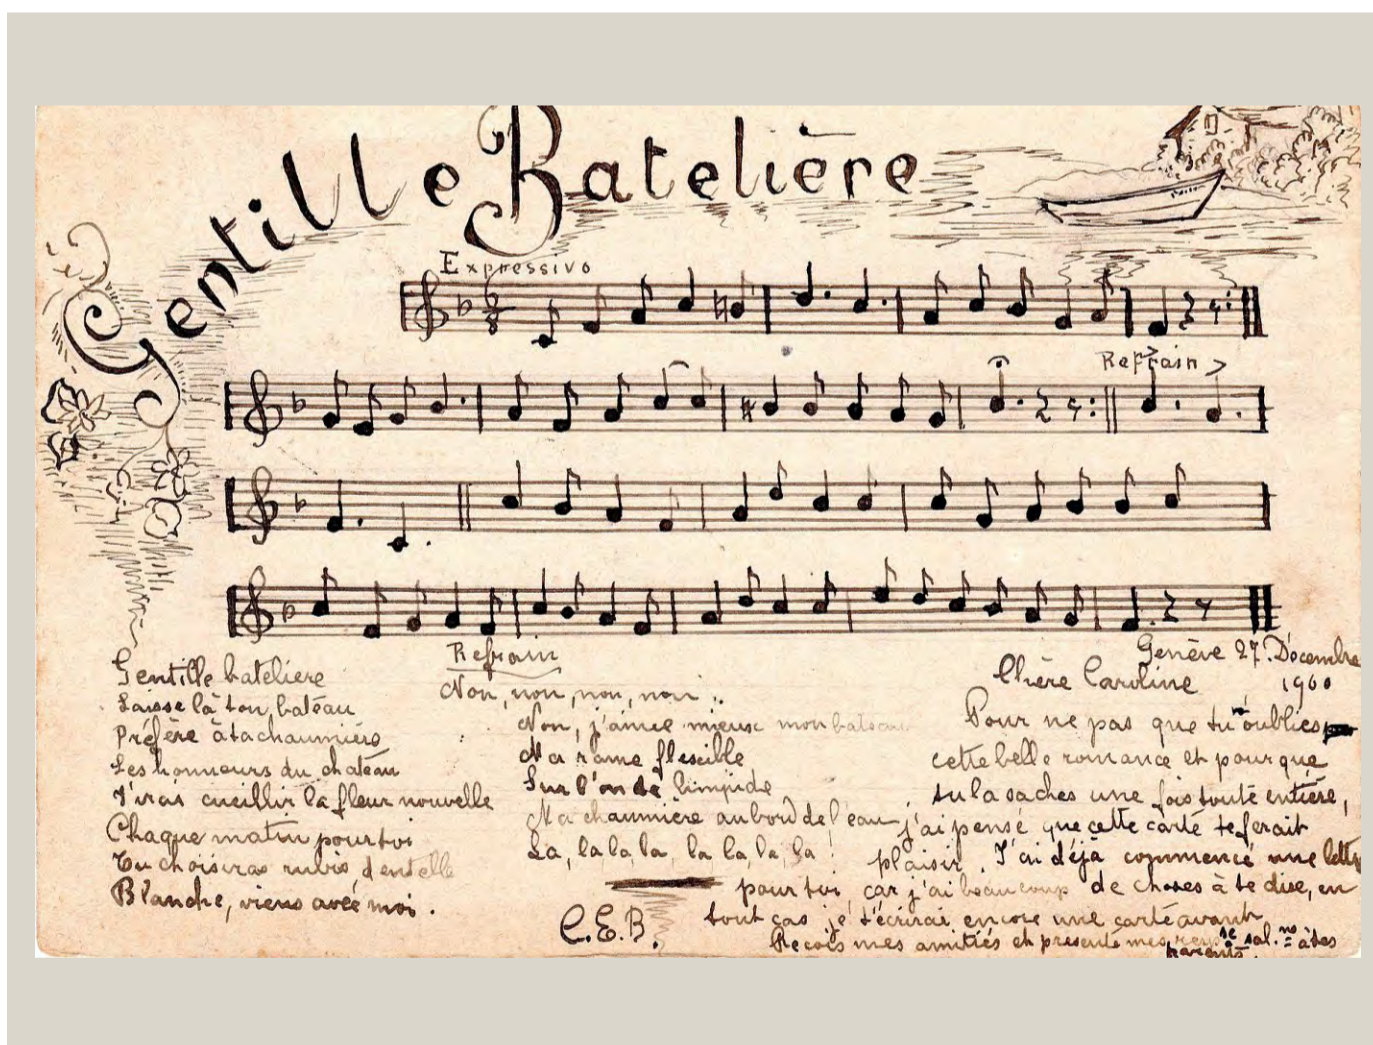 Gentille Batelière
Expressivo
Refrain
Gentille bateliere
Laisse là ton bateau
Préfère à ta chaumière
Les honneurs du chateau
J'irai cueillir la fleur nouvelle
Chaque matin pour toi
Tu choisiras rubis dentelle
Blanche, viens avec moi.
Refrain
Non, non, non, non..
Non, j'aime mieux mon bateau
Ma rame flexible
Sur l'onde limpide
Ma chaumière au bord de l'eau
La, la la la, la la la la!
C.E.B.
Genève 27. Décembre
1900
Chère Caroline
Pour ne pas que tu n'oublies
cette belle romance et pour que
tu la saches une fois toute entière,
j'ai pensé que cette carte te ferait
plaisir. J'ai déjà commencé une lettre
pour toi car j'ai beaucoup de choses à te dire, en
tout cas je t'écrirai encore une carte avant
Reçois mes amitiés et présente mes sal. à tes
parents.